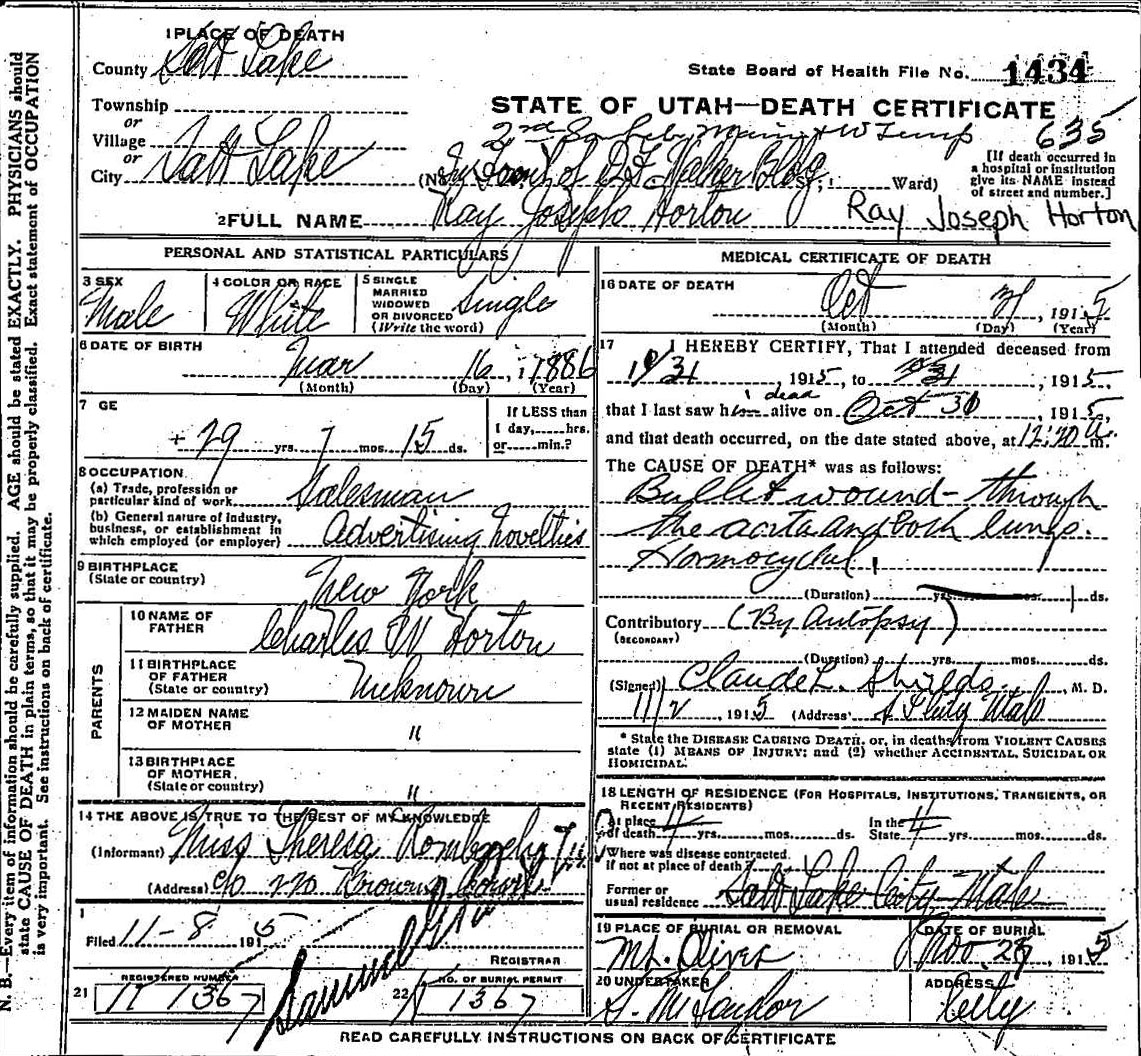 1 PLACE OF DEATH
County Salt Lake
State Board of Health File No. 1434
Township
or
Village
or
City Salt Lake
STATE OF UTAH—DEATH CERTIFICATE
635
2nd So. Main & W Temp
(No. In front of D F Walker Bldg ; Ward)
[If death occurred in
a hospital or institution
give its NAME instead
of street and number.]
2 FULL NAME Ray Joseph Horton Ray Joseph Horton
PERSONAL AND STATISTICAL PARTICULARS
3 SEX
Male
4 COLOR OR RACE
White
5 SINGLE
MARRIED
WIDOWED
OR DIVORCED
(Write the word)
Single
6 DATE OF BIRTH
Mar 16, 1886
(Month) (Day) (Year)
7 GE
+ 29 yrs. 7 mos. 15 ds.
If LESS than
1 day, hrs.
or min.?
8 OCCUPATION
(a) Trade, profession or
particular kind of work Salesman
(b) General nature of industry,
business, or establishment in
which employed (or employer) Advertising Novelties
9 BIRTHPLACE
(State or country) New York
PARENTS
10 NAME OF
FATHER Charles W Horton
11 BIRTHPLACE
OF FATHER
(State or country) Unknown
12 MAIDEN NAME
OF MOTHER "
13 BIRTHPLACE
OF MOTHER
(State or country) "
14 THE ABOVE IS TRUE TO THE BEST OF MY KNOWLEDGE
(Informant) Miss Theresa
(Address) c/o
Filed 11-8 1915
REGISTRAR
REGISTERED NUMBER
21 1367
22 NO. OF BURIAL PERMIT
1367
MEDICAL CERTIFICATE OF DEATH
16 DATE OF DEATH
Oct 31, 1915
(Month) (Day) (Year)
17 I HEREBY CERTIFY, That I attended deceased from
10/31, 1915, to 10/31, 1915,
that I last saw him dead alive on Oct 31, 1915,
and that death occurred, on the date stated above, at 12:20 a. m.
The CAUSE OF DEATH* was as follows:
Bullet wound - through
the aorta and both lungs.
(Duration) yrs. mos. 1 ds.
Contributory (By Autopsy)
(SECONDARY)
(Duration) yrs. mos. ds.
(Signed) Claude L. Shields, M. D.
11/2, 1915 (Address) S L City Utah
* State the DISEASE CAUSING DEATH, or, in deaths from VIOLENT CAUSES
state (1) MEANS OF INJURY; and (2) whether ACCIDENTAL, SUICIDAL OR
HOMICIDAL.
18 LENGTH OF RESIDENCE (FOR HOSPITALS, INSTITUTIONS, TRANSIENTS, OR
RECENT RESIDENTS)
At place
of death 4 yrs. mos. ds.
In the
State 4 yrs. mos. ds.
Where was disease contracted,
if not at place of death?
Former or
usual residence Salt Lake City Utah
19 PLACE OF BURIAL OR REMOVAL
Mt. Olivet
DATE OF BURIAL
Nov. 1915
20 UNDERTAKER
S. M Taylor
ADDRESS
City
READ CAREFULLY INSTRUCTIONS ON BACK OF CERTIFICATE
N. B.—Every item of information should be carefully supplied. AGE should be stated EXACTLY. PHYSICIANS should
state CAUSE OF DEATH in plain terms, so that it may be properly classified. Exact statement of OCCUPATION
is very important. See instructions on back of certificate.